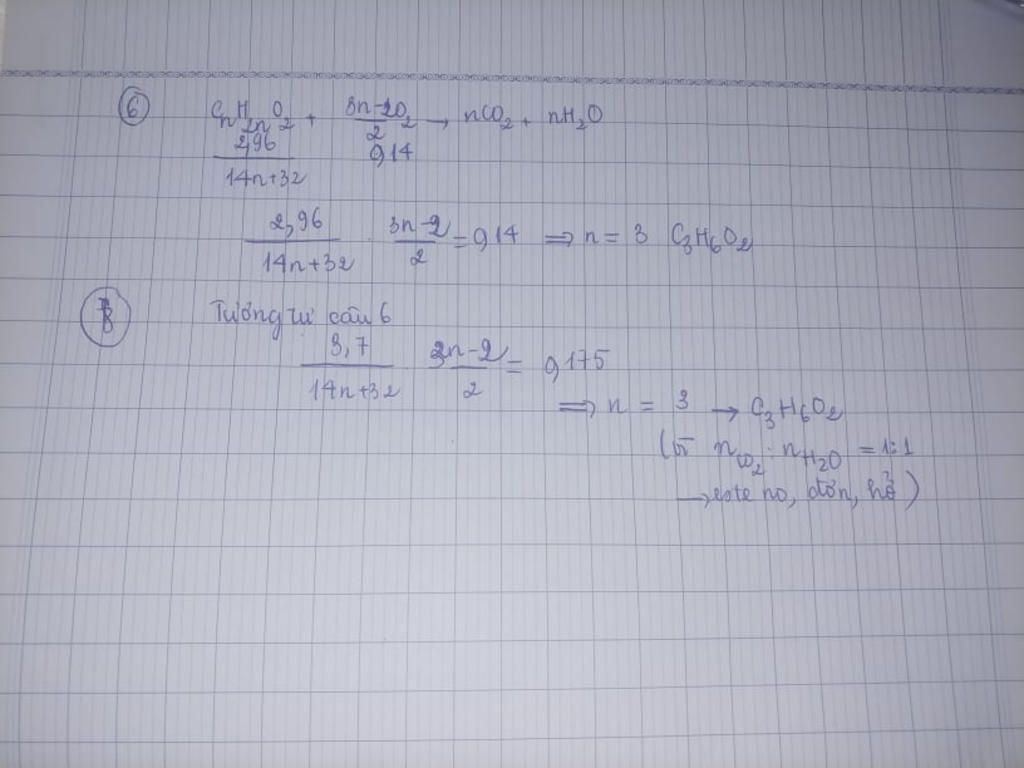 ⑥ CnH2nO2 + (3n-2)/2 O2 → nCO2 + nH2O
2,96/(14n+32) 0,14
2,96/(14n+32) · (3n-2)/2 = 0,14 ⇒ n = 3 C3H6O2
Tương tự câu 6
3,7/(14n+32) · (3n-2)/2 = 0,175
⇒ n = 3 → C3H6O2
(vì nCO2 : nH2O = 1:1
→ este no, đơn, hở)